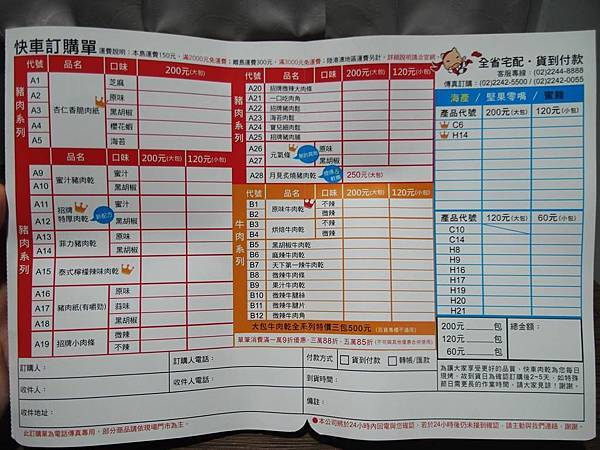 快車訂購單
運費說明：本島運費150元，滿2000元免運費；離島運費300元，滿3000元免運費；陸港澳地區運費另計，詳細說明請含官網。
全省宅配・貨到付款
客服專線：(02)2244-8888
傳真訂購：(02)2242-5500 / (02)2242-0055
豬肉系列
代號 品名 口味 200元(大包)
A1 芝麻
A2 原味
A3 杏仁香脆肉紙 黑胡椒
A4 櫻花蝦
A5 海苔
豬肉系列
代號 品名 口味 200元(大包) 120元(小包)
A9 蜜汁豬肉乾 蜜汁
A10 黑胡椒
A11 招牌特厚肉乾 蜜汁
A12 新配方 黑胡椒
A13 菲力豬肉乾 原味
A14 黑胡椒
A15 泰式檸檬辣味肉乾
A16 原味
A17 豬肉紙(有嚼勁) 蒜味
A18 黑胡椒
A19 招牌小肉條 微辣
不辣
豬肉系列
代號 品名 口味 200元(大包) 120元(小包)
A20 招牌微辣大肉條
A21 一口吃肉角
A22 招牌黑胡椒
A23 海苔肉鬆
A24 寶兒細肉鬆
A25 招牌豬肉脯
A26 元氣條 原味
A27 黑胡椒
A28 月見炙燒豬肉乾 250元(大包)
牛肉系列
代號 品名 口味 200元(大包) 120元(小包)
B1 原味牛肉乾 不辣
B2 微辣
B3 烘焙牛肉乾 不辣
B4 微辣
B5 黑胡椒牛肉乾
B6 麻辣牛肉乾
B7 天下第一辣牛肉乾
B8 微辣牛肉條
B9 果汁牛肉乾
B10 微辣牛腱絲
B11 微辣牛腱片
B12 微辣牛肉角
大包牛肉乾全系列特價三包500元
單筆消費滿一萬9折優惠，三萬88折，五萬85折
海產 / 堅果零嘴 / 蜜餞
產品代號 200元(大包) 120元(小包)
C6
H14
產品代號 120元(大包) 60元(小包)
C10
C14
H8
H9
H16
H17
H19
H20
H21
200元 包 總金額：
120元 包
60元 包
為讓大家享受更好的品質，快車肉乾為您每日
現烤，故到貨日為確認訂購後2~5天，如特殊
節日需更長的作業時間，請大家見諒！謝謝。
訂購人： 訂購人電話： 付款方式 貨到付款 轉帳/匯款
收件人： 收件人電話： 到貨時間：
收件地址： 備註：
此訂購單為電話傳真專用，部分商品請依現場門市為主。
●本公司將於24小時內回電與您確認，若於24小時後仍未接到確認，請主動與我們連絡，謝謝。